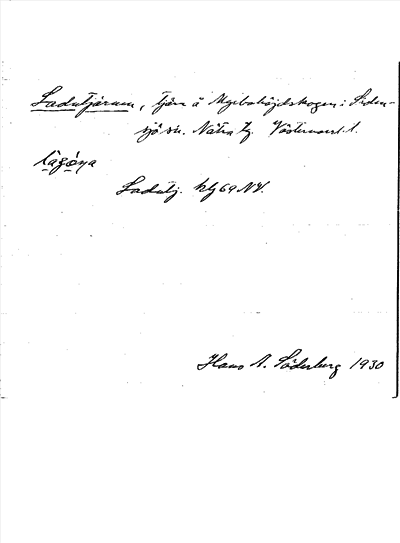 Ladutjärnen, tjärn å Myckohöjdskogen i Siden-
sjö sn. Nätra tg. Västernorrl. l.
Ladutj. klj 69 NV.
Hans A. Söderberg 1930